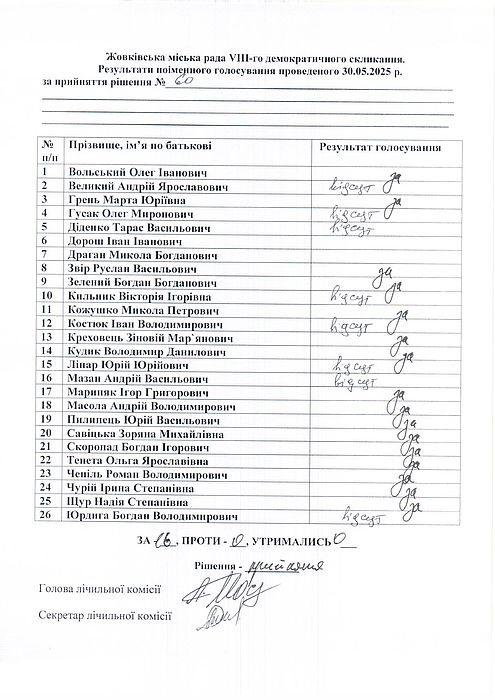 Жовківська міська рада VIII-го демократичного скликання.
Результати поіменного голосування проведеного 30.05.2025 р.
за прийняття рішення № 60
№ п/п Прізвище, ім’я по батькові Результат голосування
1 Вольський Олег Іванович за
2 Великий Андрій Ярославович відсут
3 Грень Марта Юріївна за
4 Гусак Олег Миронович відсут
5 Діденко Тарас Васильович відсут
6 Дорош Іван Іванович
7 Драган Микола Богданович
8 Звір Руслан Васильович за
9 Зелений Богдан Богданович за
10 Кильник Вікторія Ігорівна відсут
11 Кожушко Микола Петрович за
12 Костюк Іван Володимирович відсут
13 Креховець Зіновій Мар`янович за
14 Кудик Володимир Данилович за
15 Лінар Юрій Юрійович відсут
16 Мазан Андрій Васильович відсут
17 Мариняк Ігор Григорович за
18 Масола Андрій Володимирович за
19 Пилипець Юрій Васильович за
20 Савіцька Зоряна Михайлівна за
21 Скоропад Богдан Ігорович за
22 Тенета Ольга Ярославівна за
23 Чепіль Роман Володимирович за
24 Чурій Ірина Степанівна за
25 Щур Надія Степанівна за
26 Юрдига Богдан Володимирович відсут
ЗА 16, ПРОТИ - 0, УТРИМАЛИСЬ 0
Рішення - прийняте
Голова лічильної комісії
Секретар лічильної комісії